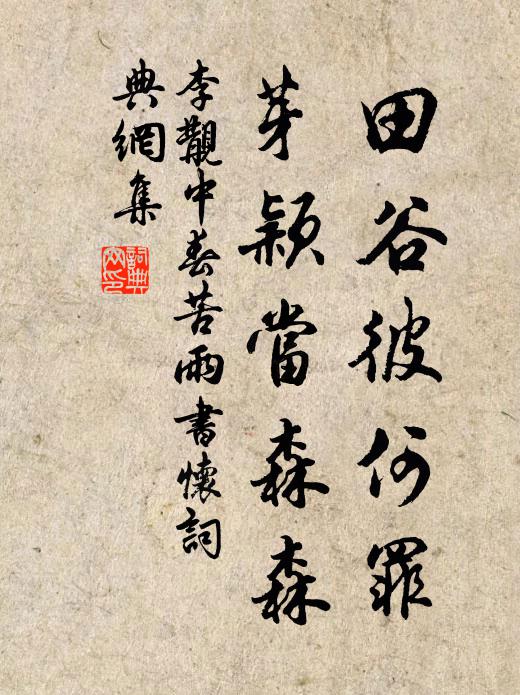 田谷彼何罪
芽穎當森森
李觀中春苦雨書懷詞
典網集
詞典
文印